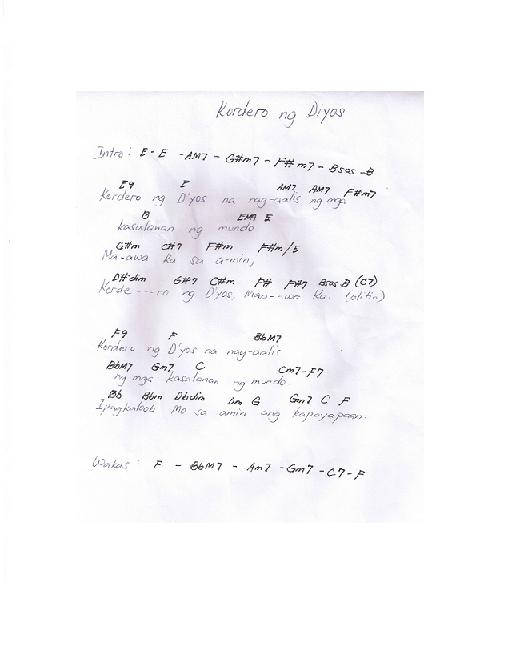 Kordero ng Diyos
Intro: E - E - AM7 - G#m7 - F#m7 - Bsus - B
E9 E AM7 AM7 F#m7
Kordero ng D'yos na nag-aalis ng mga
B EM7 E
kasalanan ng mundo
G#m C#7 F#m F#m/B
Ma-awa Ka sa amin,
D#dim G#7 C#m F# F#7 Bsus B (C7)
Korde---ro ng D'yos, Maa--wa Ka. (ulitin)
F9 F BbM7
Kordero ng D'yos na nag-aalis
BbM7 Gm7 C Cm7-F7
ng mga kasalanan ng mundo
Bb Bbm G Gm7 C F
Ipagkaloob Mo sa amin ang kapayapaan.
Wakas: F - BbM7 - Am7 - Gm7 - C7 - F